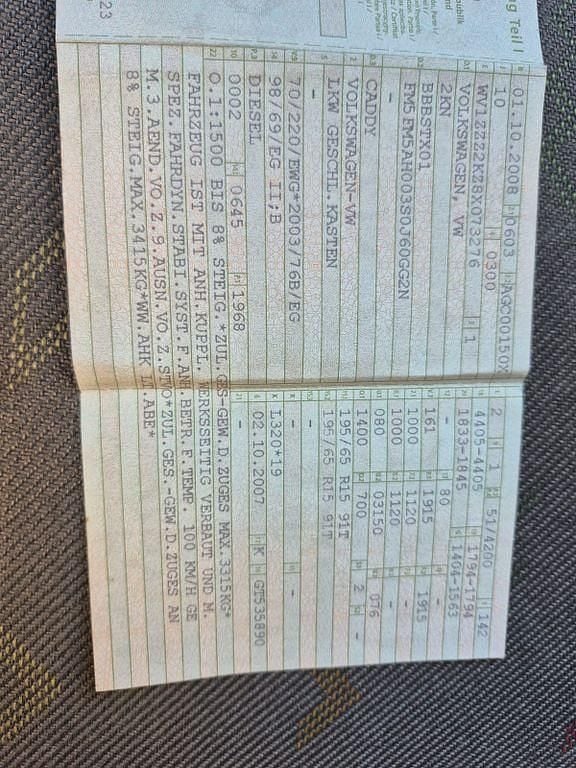 ng Teil I
publik
01.10.2008 0603 AGC00150X
10 0300 1
WV1ZZZ2KZ8X073276
VOLKSWAGEN, VW
2KN
BBBSTX01
FM5FM5AH003S0J60GG2N
-
CADDY
VOLKSWAGEN-VW
LKW GESCHL.KASTEN
-
70/220/EWG*2003/76B/EG
98/69/EG II;B
DIESEL
0002 0645 1968
2 1 51/4200 142
4405-4405 1794-1794
1833-1845 1404-1563
- 80 -
161 1915 1915
1000 1120 -
1000 1120 -
080 03150 076
1400 700 2 -
195/65 R15 91T
195/65 R15 91T
-
- -
L320*19
02.10.2007 K GT535890
-
O.1:1500 BIS 8% STEIG.*ZUL.GES-GEW.D.ZUGES MAX.3315KG*
FAHRZEUG IST MIT ANH.KUPPL. WERKSSEITIG VERBAUT UND M.
SPEZ.FAHRDYN.STABI.SYST.F ANH.BETR.F.TEMP. 100 KM/H GE
M.3.AEND.VO.Z.9.AUSN.VO.Z.STVO*ZUL.GES.-GEW.D.ZUGES AN
8% STEIG.MAX.3415KG*WW.AHK LT.ABE*
23